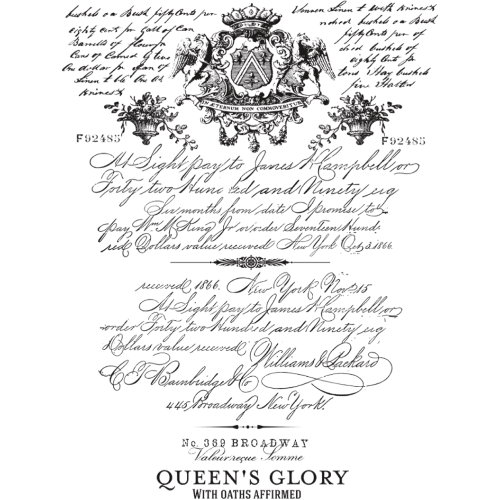 bushels oa Bush fifty Cents per
eighty cents per Gall of Can
Barrells of flour for
Cans of Colored Glass
One dollar per
Linen t
bushels oa Bush
fifty Cents per
bushels of
eighty Cents pr
tons Hay bushels
five
IN ÆTERNUM NON COMMOVEBITUR
F92485
F92485
At Sight pay to James W Campbell, or
Forty two Hund ed and Ninety eig
Six months from date I promise to
pay Wm McKing Jr or order Seventeen Hund
red Dollars value received New York Oct 3. 1866.
received 1866. New York Nov. 15
At Sight pay to James W Campbell, or
order Forty two Hund d and Ninety eig
Dollars value received
Williams & Packard
C F Bainbridge & Co
445 Broadway New York.
No. 389 BROADWAY
Valeur reçue Somme
QUEEN'S GLORY
WITH OATHS AFFIRMED